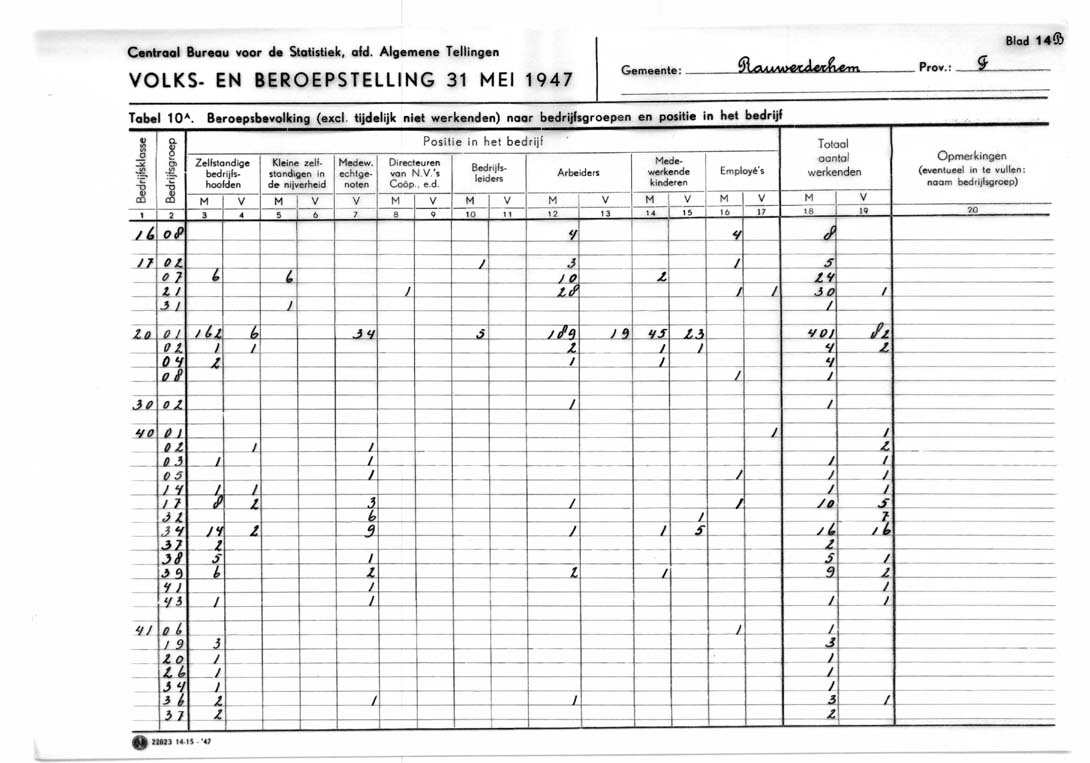 Blad 14B
Centraal Bureau voor de Statistiek, afd. Algemene Tellingen
VOLKS- EN BEROEPSTELLING 31 MEI 1947
Gemeente: Rauwerderhem Prov.: F
Tabel 10A. Beroepsbevolking (excl. tijdelijk niet werkenden) naar bedrijfsgroepen en positie in het bedrijf
Bedrijfsklasse Bedrijfsgroep Positie in het bedrijf Totaal aantal werkenden Opmerkingen (eventueel in te vullen: naam bedrijfsgroep)
Zelfstandige bedrijfs-hoofden Kleine zelf-standigen in de nijverheid Medew. echtge-noten Directeuren van N.V.'s Coöp., e.d. Bedrijfs-leiders Arbeiders Mede-werkende kinderen Employé's
M V M V V M V M V M V M V M V M V
1 2 3 4 5 6 7 8 9 10 11 12 13 14 15 16 17 18 19 20
16 08 4 4 8
17 02 1 3 1 5
07 6 6 10 2 24
21 1 28 1 1 30 1
31 1 1
20 01 162 6 34 5 189 19 45 23 401 82
02 1 1 2 1 1 4 2
04 2 1 1 4
08 1 1
30 02 1 1
40 01 1 1
02 1 1 2
03 1 1 1 1
05 1 1 1 1
14 1 1 1 1
17 8 2 3 1 1 10 5
32 6 1 7
34 14 2 9 1 1 5 16 16
37 2 2
38 5 1 5 1
39 6 2 2 1 9 2
41 1 1
43 1 1 1 1
41 06 1 1
19 3 3
20 1 1
26 1 1
34 1 1
36 2 1 1 3 1
37 2 2
22823 14-15 - '47